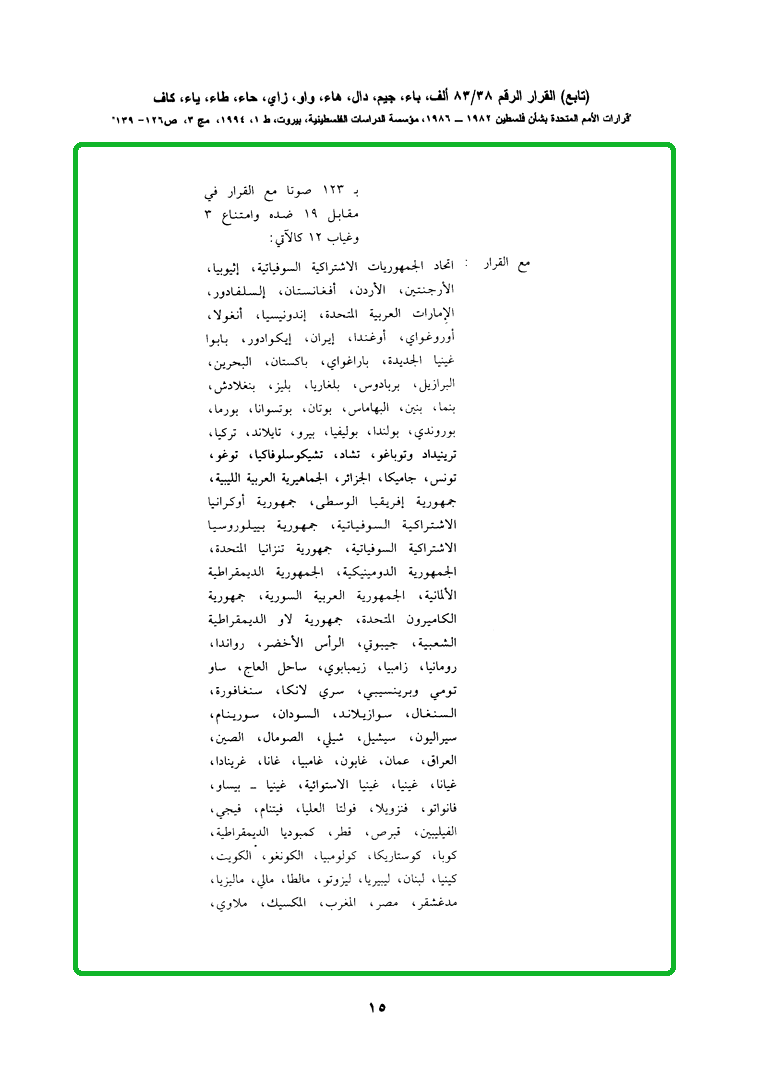 (تابع) القرار الرقم ٨٣/٣٨ ألف، باء، جيم، دال، هاء، واو، زاي، حاء، طاء، ياء، كاف
"قرارات الأمم المتحدة بشأن فلسطين ١٩٨٢ ــ ١٩٨٦، مؤسسة الدراسات الفلسطينية، بيروت، ط ١، ١٩٩٤، مج ٣، ص١٢٦- ١٣٩"
بـ ١٢٣ صوتا مع القرار في
مقابل ١٩ ضده وامتناع ٣
وغياب ١٢ كالآتي:
مع القرار : اتحاد الجمهوريات الاشتراكية السوفياتية، إثيوبيا،
الأرجنتين، الأردن، أفغانستان، إلسلفادور،
الإمارات العربية المتحدة، إندونيسيا، أنغولا،
أوروغواي، أوغندا، إيران، إيكوادور، بابوا
غينيا الجديدة، باراغواي، باكستان، البحرين،
البرازيل، بربادوس، بلغاريا، بليز، بنغلادش،
بنما، بنين، البهاماس، بوتان، بوتسوانا، بورما،
بوروندي، بولندا، بوليفيا، بيرو، تايلاند، تركيا،
ترينيداد وتوباغو، تشاد، تشيكوسلوفاكيا، توغو،
تونس، جاميكا، الجزائر، الجماهيرية العربية الليبية،
جمهورية إفريقيا الوسطى، جمهورية أوكرانيا
الاشتراكية السوفياتية، جمهورية بييلوروسيا
الاشتراكية السوفياتية، جمهورية تنزانيا المتحدة،
الجمهورية الدومينيكية، الجمهورية الديمقراطية
الألمانية، الجمهورية العربية السورية، جمهورية
الكاميرون المتحدة، جمهورية لاو الديمقراطية
الشعبية، جيبوتي، الرأس الأخضر، رواندا،
رومانيا، زامبيا، زيمبابوي، ساحل العاج، ساو
تومي وبرينسيبي، سري لانكا، سنغافورة،
السنغال، سوازيلاند، السودان، سورينام،
سيراليون، سيشيل، شيلي، الصومال، الصين،
العراق، عمان، غابون، غامبيا، غانا، غرينادا،
غيانا، غينيا، غينيا الاستوائية، غينيا ــ بيساو،
فانواتو، فنزويلا، فولتا العليا، فيتنام، فيجي،
الفيليبين، قبرص، قطر، كمبوديا الديمقراطية،
كوبا، كوستاريكا، كولومبيا، الكونغو، الكويت،
كينيا، لبنان، ليبيريا، ليزوتو، مالطا، مالي، ماليزيا،
مدغشقر، مصر، المغرب، المكسيك، ملاوي،
١٥